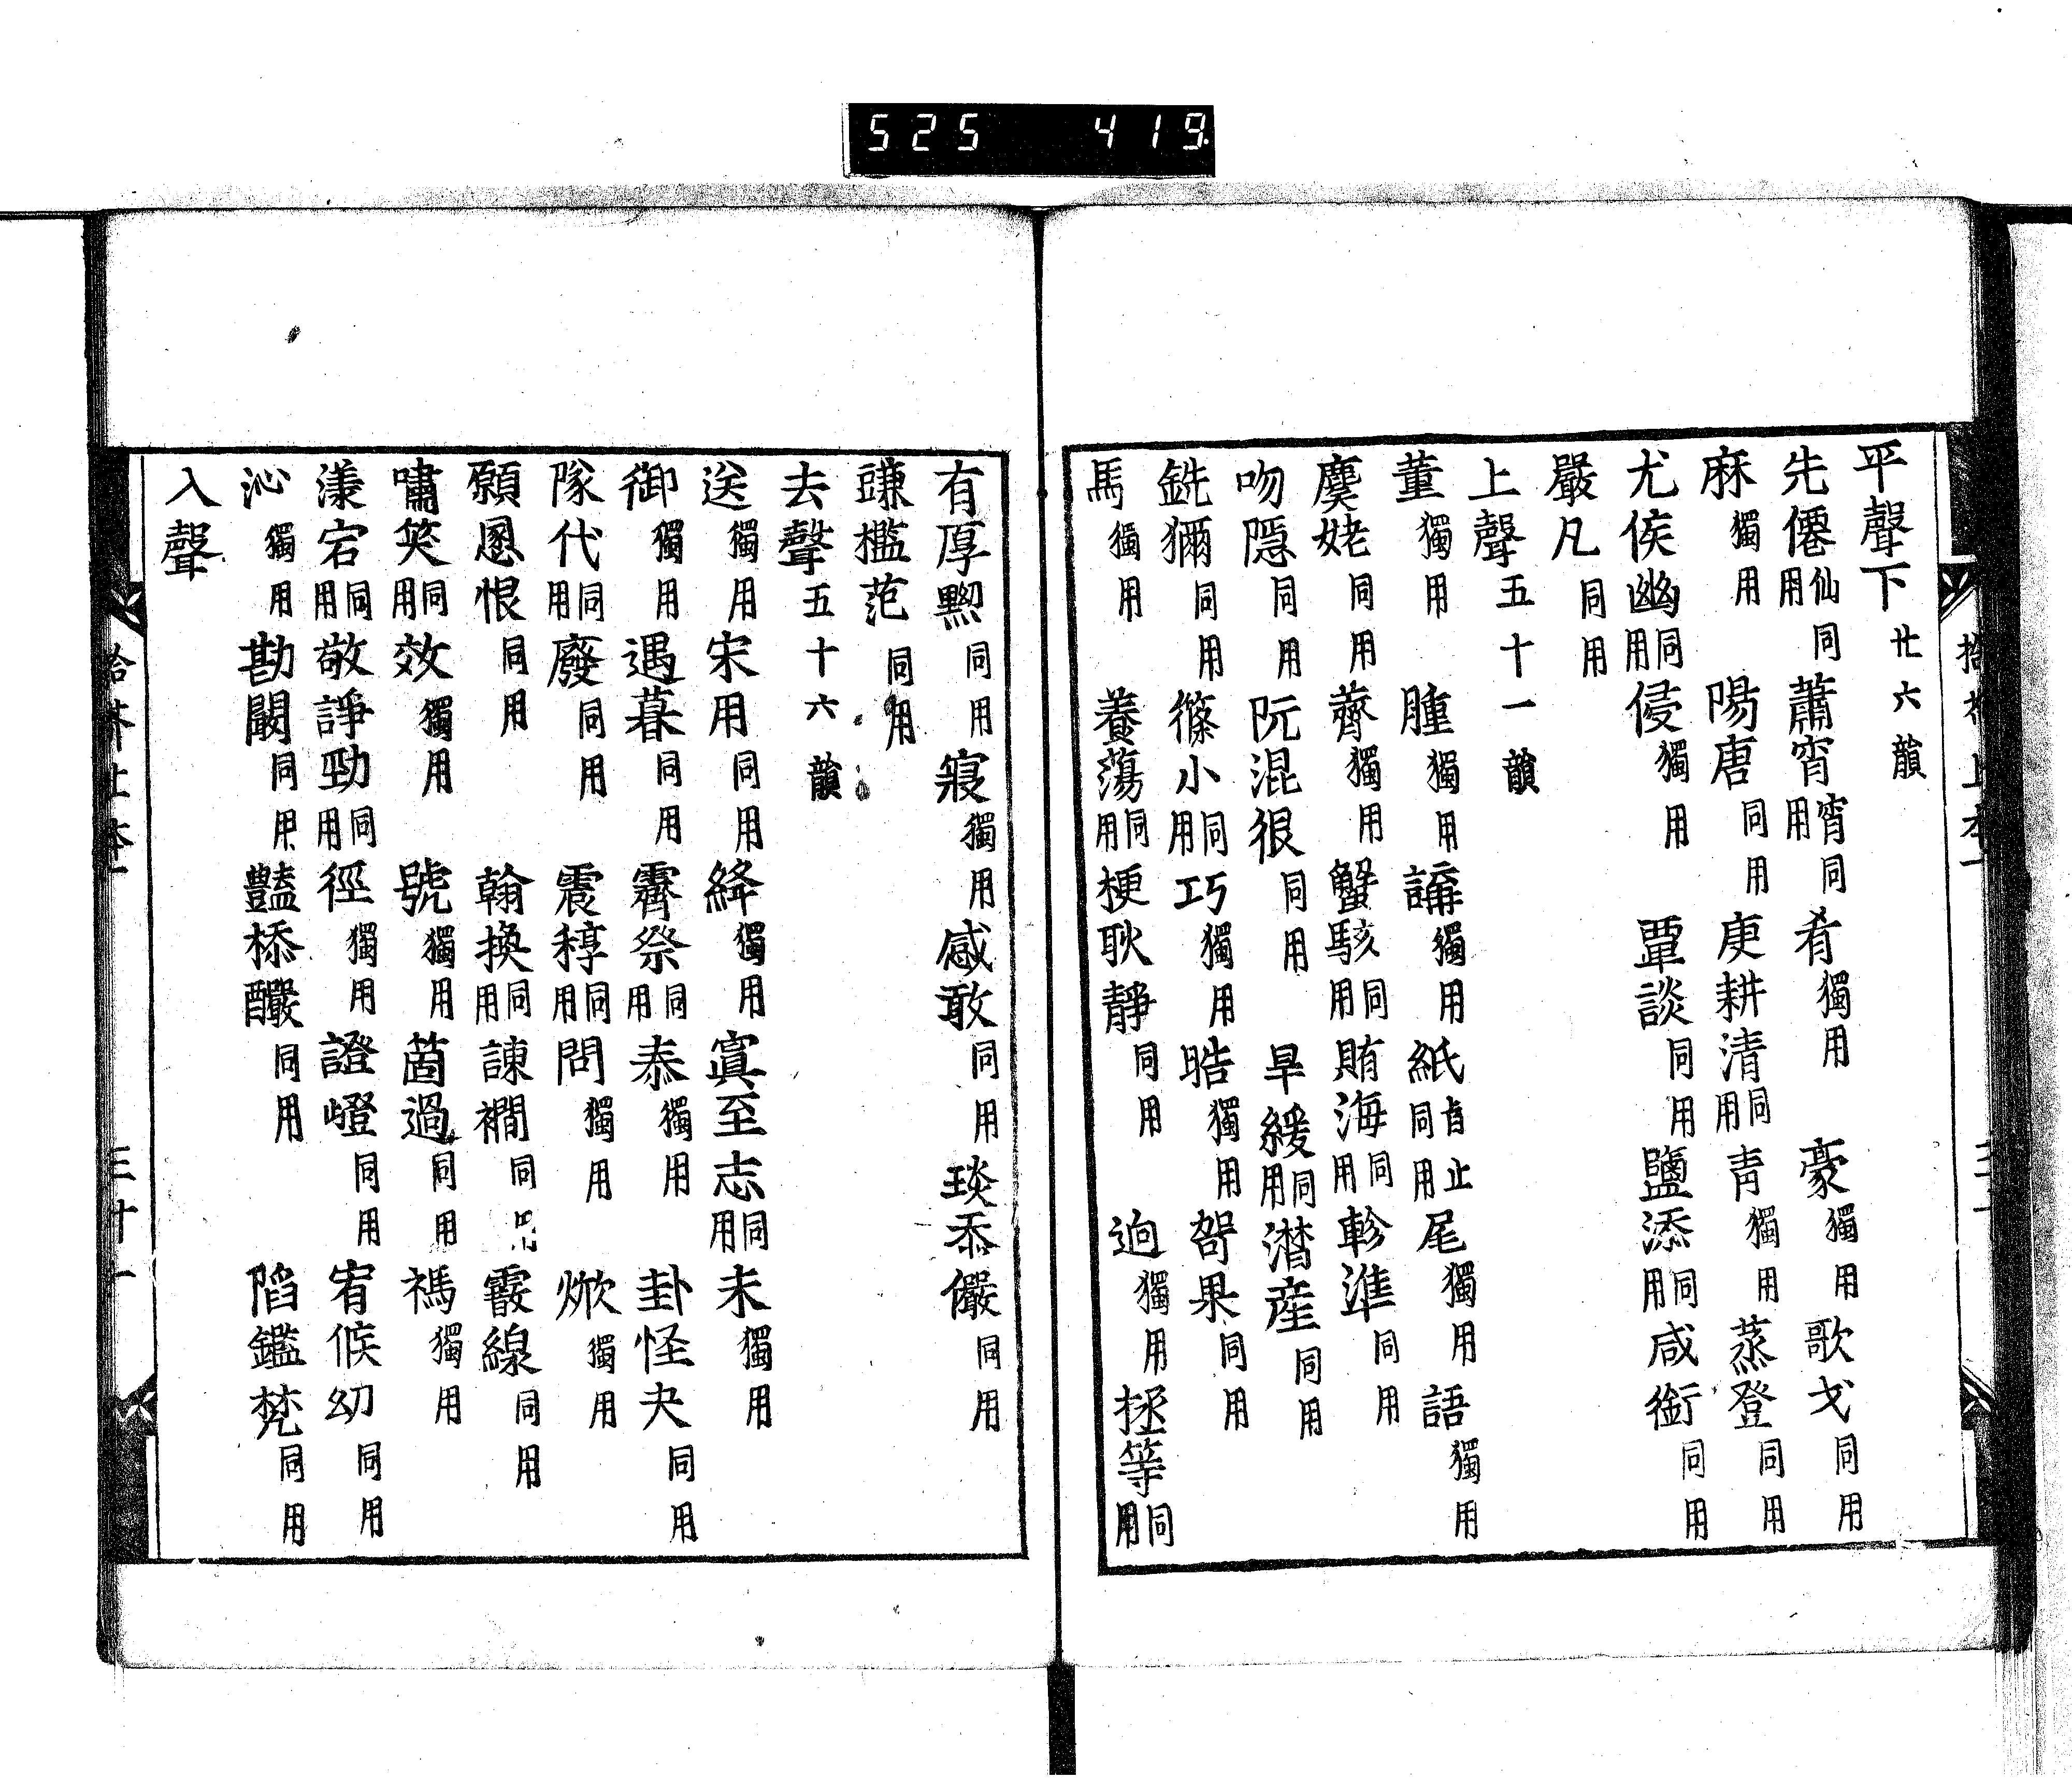 525 419
平聲下 廿六韻
先僊仙同用 蕭宵宵同用 肴獨用 豪獨用 歌戈同用
麻獨用 陽唐同用 庚耕清同用 青獨用 蒸登同用
尤侯幽同用 侵獨用 覃談同用 鹽添同用 咸銜同用
嚴凡同用
上聲五十一韻
董獨用 腫獨用 講獨用 紙旨止同用 尾獨用 語獨用
麌姥同用 薺獨用 蟹駭同用 賄海同用 軫準同用
吻隠同用 阮混很同用 旱緩同用 潸産同用
銑獮同用 篠小同用 巧獨用 晧獨用 哿果同用
馬獨用 養蕩同用 梗耿靜同用 迥獨用 拯等同用
有厚黝同用 寑獨用 感敢同用 琰忝儼同用
豏檻范同用
去聲五十六韻
送獨用 宋用同用 絳獨用 寘至志同用 未獨用
御獨用 遇暮同用 霽祭同用 泰獨用 卦怪夬同用
隊代同用 廢同用 震稕同用 問獨用 焮獨用
願慁恨同用 翰換同用 諫襇同用 霰線同用
嘯笑同用 效獨用 號獨用 箇過同用 禡獨用
漾宕同用 敬諍勁同用 徑獨用 證嶝同用 宥候幼同用
沁獨用 勘闞同用 豔㮇釅同用 陷鑑梵同用
入聲
拾芥上本 三十一